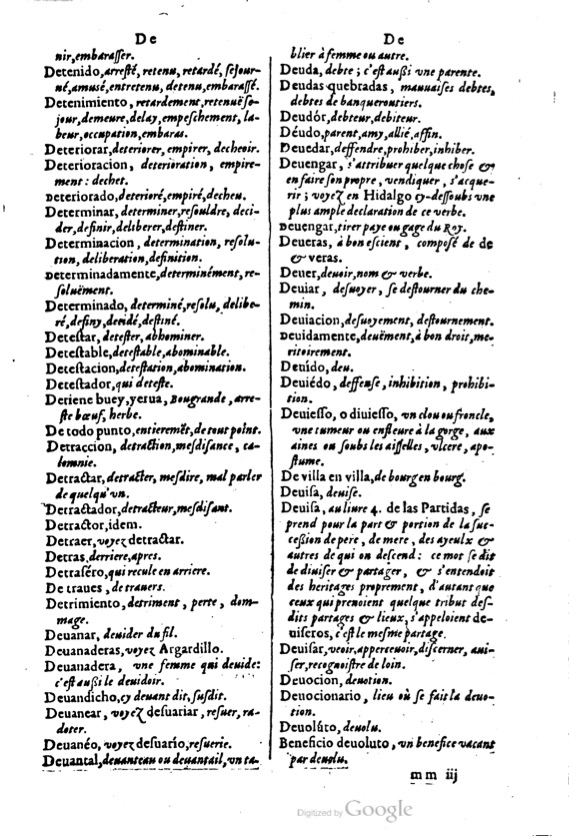 De
nir,embarasser.
Detenido,arresté, retenu, retardé, sejour-
né,amusé,entretenu, detenu,embarassé.
Detenimiento, retardement,retenuë so-
jour,demeure,delay,empeschement, la-
beur,occupation,embaras.
Deteriorar,deteriorer, empirer, decheoir.
Deterioracion, deterioration, empire-
ment: dechet.
Deteriorado,deterioré,empiré,decheu.
Determinar, determiner,resouldre, deci-
der,definir,deliberer,destiner.
Determinacion, determination, resolu-
tion, deliberation,definition.
Determinadamente,determinément, re-
soluëment.
Determinado, determiné,resolu, delibe-
ré,definy,decidé,destiné.
Detestar, detester, abhominer.
Detestable,detestable,abominable.
Detestacion,detestation,abomination.
Detestador,qui deteste.
Detiene buey,yerua, Bougrande, arre-
ste bœuf, herbe.
De todo punto,entieremẽt,de tout point.
Detraccion,detraction,mesdisance, ca-
lomnie.
Detractar,detracter, mesdire, mal parler
de quelqu'vn.
Detractador,detracteur,mesdisant.
Detractor,idem.
Detraer, voyez detractar.
Detras,derriere,apres.
Detraséro,qui recule en arriere.
De traues, de trauers.
Detrimiento, detriment, perte, dom-
mage.
Deuanar, deuider du fil.
Deuanaderas,voyez Argardillo.
Deuanadera, vne femme qui deuide:
c'est aussi le deuidoir.
Deuandicho,cy deuant dit,susdit.
Deuanear, voyez desuariar, resuer, ra-
doter.
Deuanéo, voyez desuario,resuerie.
Deuantal,deuanteau ou deuantail,vn ta-
De
blier à femme ou autre.
Deuda, debte; c'est aussi vne parente.
Deudas quebradas, mauuaises debtes,
debtes de banqueroutiers.
Deudór,debteur,debiteur.
Déudo,parent,amy,allié,affin.
Deuedar,deffendre,prohiber,inhiber.
Deuengar, s'attribuer quelque chose &
en faire son propre, vendiquer, s'acque-
rir; voyez en Hidalgo cy-dessoubs vne
plus ample declaration de ce verbe.
Deuengar,tirer paye ou gage du Roy.
Deueras, à bon escient, composé de de
& veras.
Deuer,deuoir,nom & verbe.
Deuiar, desuoyer, se destourner du che-
min.
Deuiacion,desuoyement, destournement.
Deuidamente,deuëment,à bon droit,me-
ritoirement.
Deuido,deu.
Deuiédo, deffense, inhibition, prohibi-
tion.
Deuiesso, o diuiesso, vn clou ou froncle,
vne tumeur ou enfleure à la gorge, aux
aines ou soubs les aisselles, vlcere, apo-
stume.
De villa en villa,de bourg en bourg.
Deuisa, deuise.
Deuisa, au liure 4. de las Partidas, se
prend pour la part & portion de la suc-
cession de pere, de mere, des ayeulx &
autres de qui on descend: ce mot se dit
de diuiser & partager, & s'entendoit
des heritages proprement, d'autant que
ceux qui prenoient quelque tribut des-
dits partages & lieux, s'appeloient de-
uiseros, c'est le mesme partage.
Deuisar,veoir,apperceuoir,discerner, aui-
ser,recognoistre de loin.
Deuocion, deuotion.
Deuocionario, lieu où se fait la deuo-
tion.
Deuolúto, deuolu.
Beneficio deuoluto, vn benefice vacant
par deuolu.
mm iij
Digitized by Google